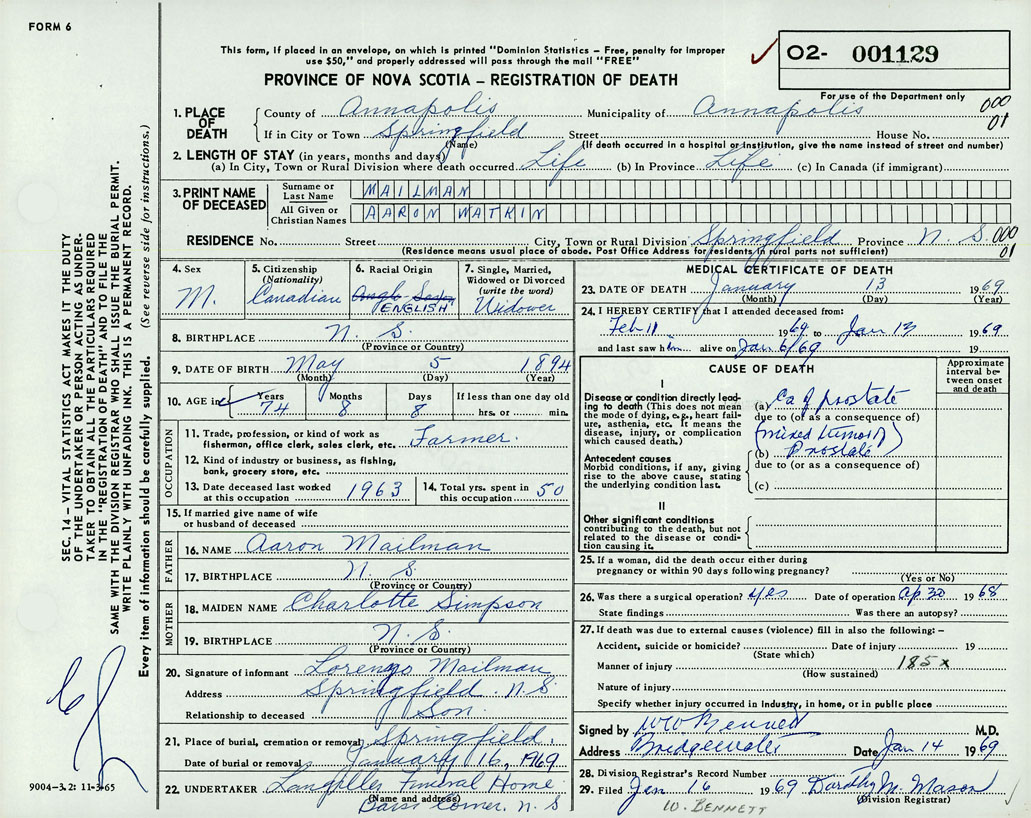 FORM 6
This form, if placed in an envelope, on which is printed "Dominion Statistics – Free, penalty for improper
use $50," and properly addressed will pass through the mail "FREE"
02- 001129
For use of the Department only
PROVINCE OF NOVA SCOTIA – REGISTRATION OF DEATH
000
01
1. PLACE OF DEATH
County of Annapolis Municipality of Annapolis
If in City or Town Springfield Street House No.
(Name) (If death occurred in a hospital or institution, give the name instead of street and number)
2. LENGTH OF STAY (in years, months and days)
(a) In City, Town or Rural Division where death occurred Life (b) In Province Life (c) In Canada (if immigrant)
3. PRINT NAME OF DECEASED
Surname or Last Name MAILMAN
All Given or Christian Names AARON WATKIN
RESIDENCE No. Street City, Town or Rural Division Springfield Province N.S. 000
01
(Residence means usual place of abode. Post Office Address for residents in rural parts not sufficient)
4. Sex
M.
5. Citizenship
(Nationality)
Canadian
6. Racial Origin
Anglo Saxon
ENGLISH
7. Single, Married,
Widowed or Divorced
(write the word)
Widower
8. BIRTHPLACE N. S.
(Province or Country)
9. DATE OF BIRTH May 5 1894
(Month) (Day) (Year)
10. AGE in Years Months Days If less than one day old
74 8 8 hrs. or min.
OCCUPATION
11. Trade, profession, or kind of work as
fishermen, office clerk, sales clerk, etc. Farmer.
12. Kind of industry or business, as fishing,
bank, grocery store, etc.
13. Date deceased last worked
at this occupation 1963
14. Total yrs. spent in
this occupation 50
15. If married give name of wife
or husband of deceased
FATHER
16. NAME Aaron Mailman
17. BIRTHPLACE N. S.
(Province or Country)
MOTHER
18. MAIDEN NAME Charlotte Simpson
19. BIRTHPLACE N. S.
(Province or Country)
20. Signature of informant Lorenzo Mailman
Address Springfield. N.S
Relationship to deceased Son.
21. Place of burial, cremation or removal Springfield.
Date of burial or removal January 16, 1969
22. UNDERTAKER Langilles Funeral Home
(Name and address)
Corner, N. S
MEDICAL CERTIFICATE OF DEATH
23. DATE OF DEATH January 13 1969
(Month) (Day) (Year)
24. I HEREBY CERTIFY that I attended deceased from:
Feb 11 1969 to Jan 13 1969
and last saw him alive on Jan 6/69 19
CAUSE OF DEATH
Approximate
interval be-
tween onset
and death
I
Disease or condition directly lead-
ing to death (This does not mean
the mode of dying, e.g., heart fail-
ure, asthenia, etc. It means the
disease, injury, or complication
which caused death.)
(a) Ca of prostate
due to (or as a consequence of)
(mixed tumor of
(b) Prostate)
due to (or as a consequence of)
(c)
Antecedent causes
Morbid conditions, if any, giving
rise to the above cause, stating
the underlying condition last.
II
Other significant conditions
contributing to the death, but not
related to the disease or condi-
tion causing it.
25. If a woman, did the death occur either during
pregnancy or within 90 days following pregnancy?
(Yes or No)
26. Was there a surgical operation? yes Date of operation Ap 30 1968
State findings Was there an autopsy?
27. If death was due to external causes (violence) fill in also the following:–
Accident, suicide or homicide? Date of injury 19
(State which)
Manner of injury 185x
(How sustained)
Nature of injury
Specify whether injury occurred in industry, in home, or in public place
Signed by WW Bennett M.D.
Address Bridgewater Date Jan 14 1969
28. Division Registrar's Record Number
29. Filed Jan 16 1969 Dorothy M. Mason
(Division Registrar)
W. BENNETT
SEC. 14 – VITAL STATISTICS ACT MAKES IT THE DUTY
OF THE UNDERTAKER OR PERSON ACTING AS UNDER-
TAKER TO OBTAIN ALL THE PARTICULARS REQUIRED
IN THE "REGISTRATION OF DEATH" AND TO FILE THE
SAME WITH THE DIVISION REGISTRAR WHO SHALL ISSUE THE BURIAL PERMIT.
WRITE PLAINLY WITH UNFADING INK. THIS IS A PERMANENT RECORD.
Every item of information should be carefully supplied. (See reverse side for instructions.)
9004-3.2: 11-3-65